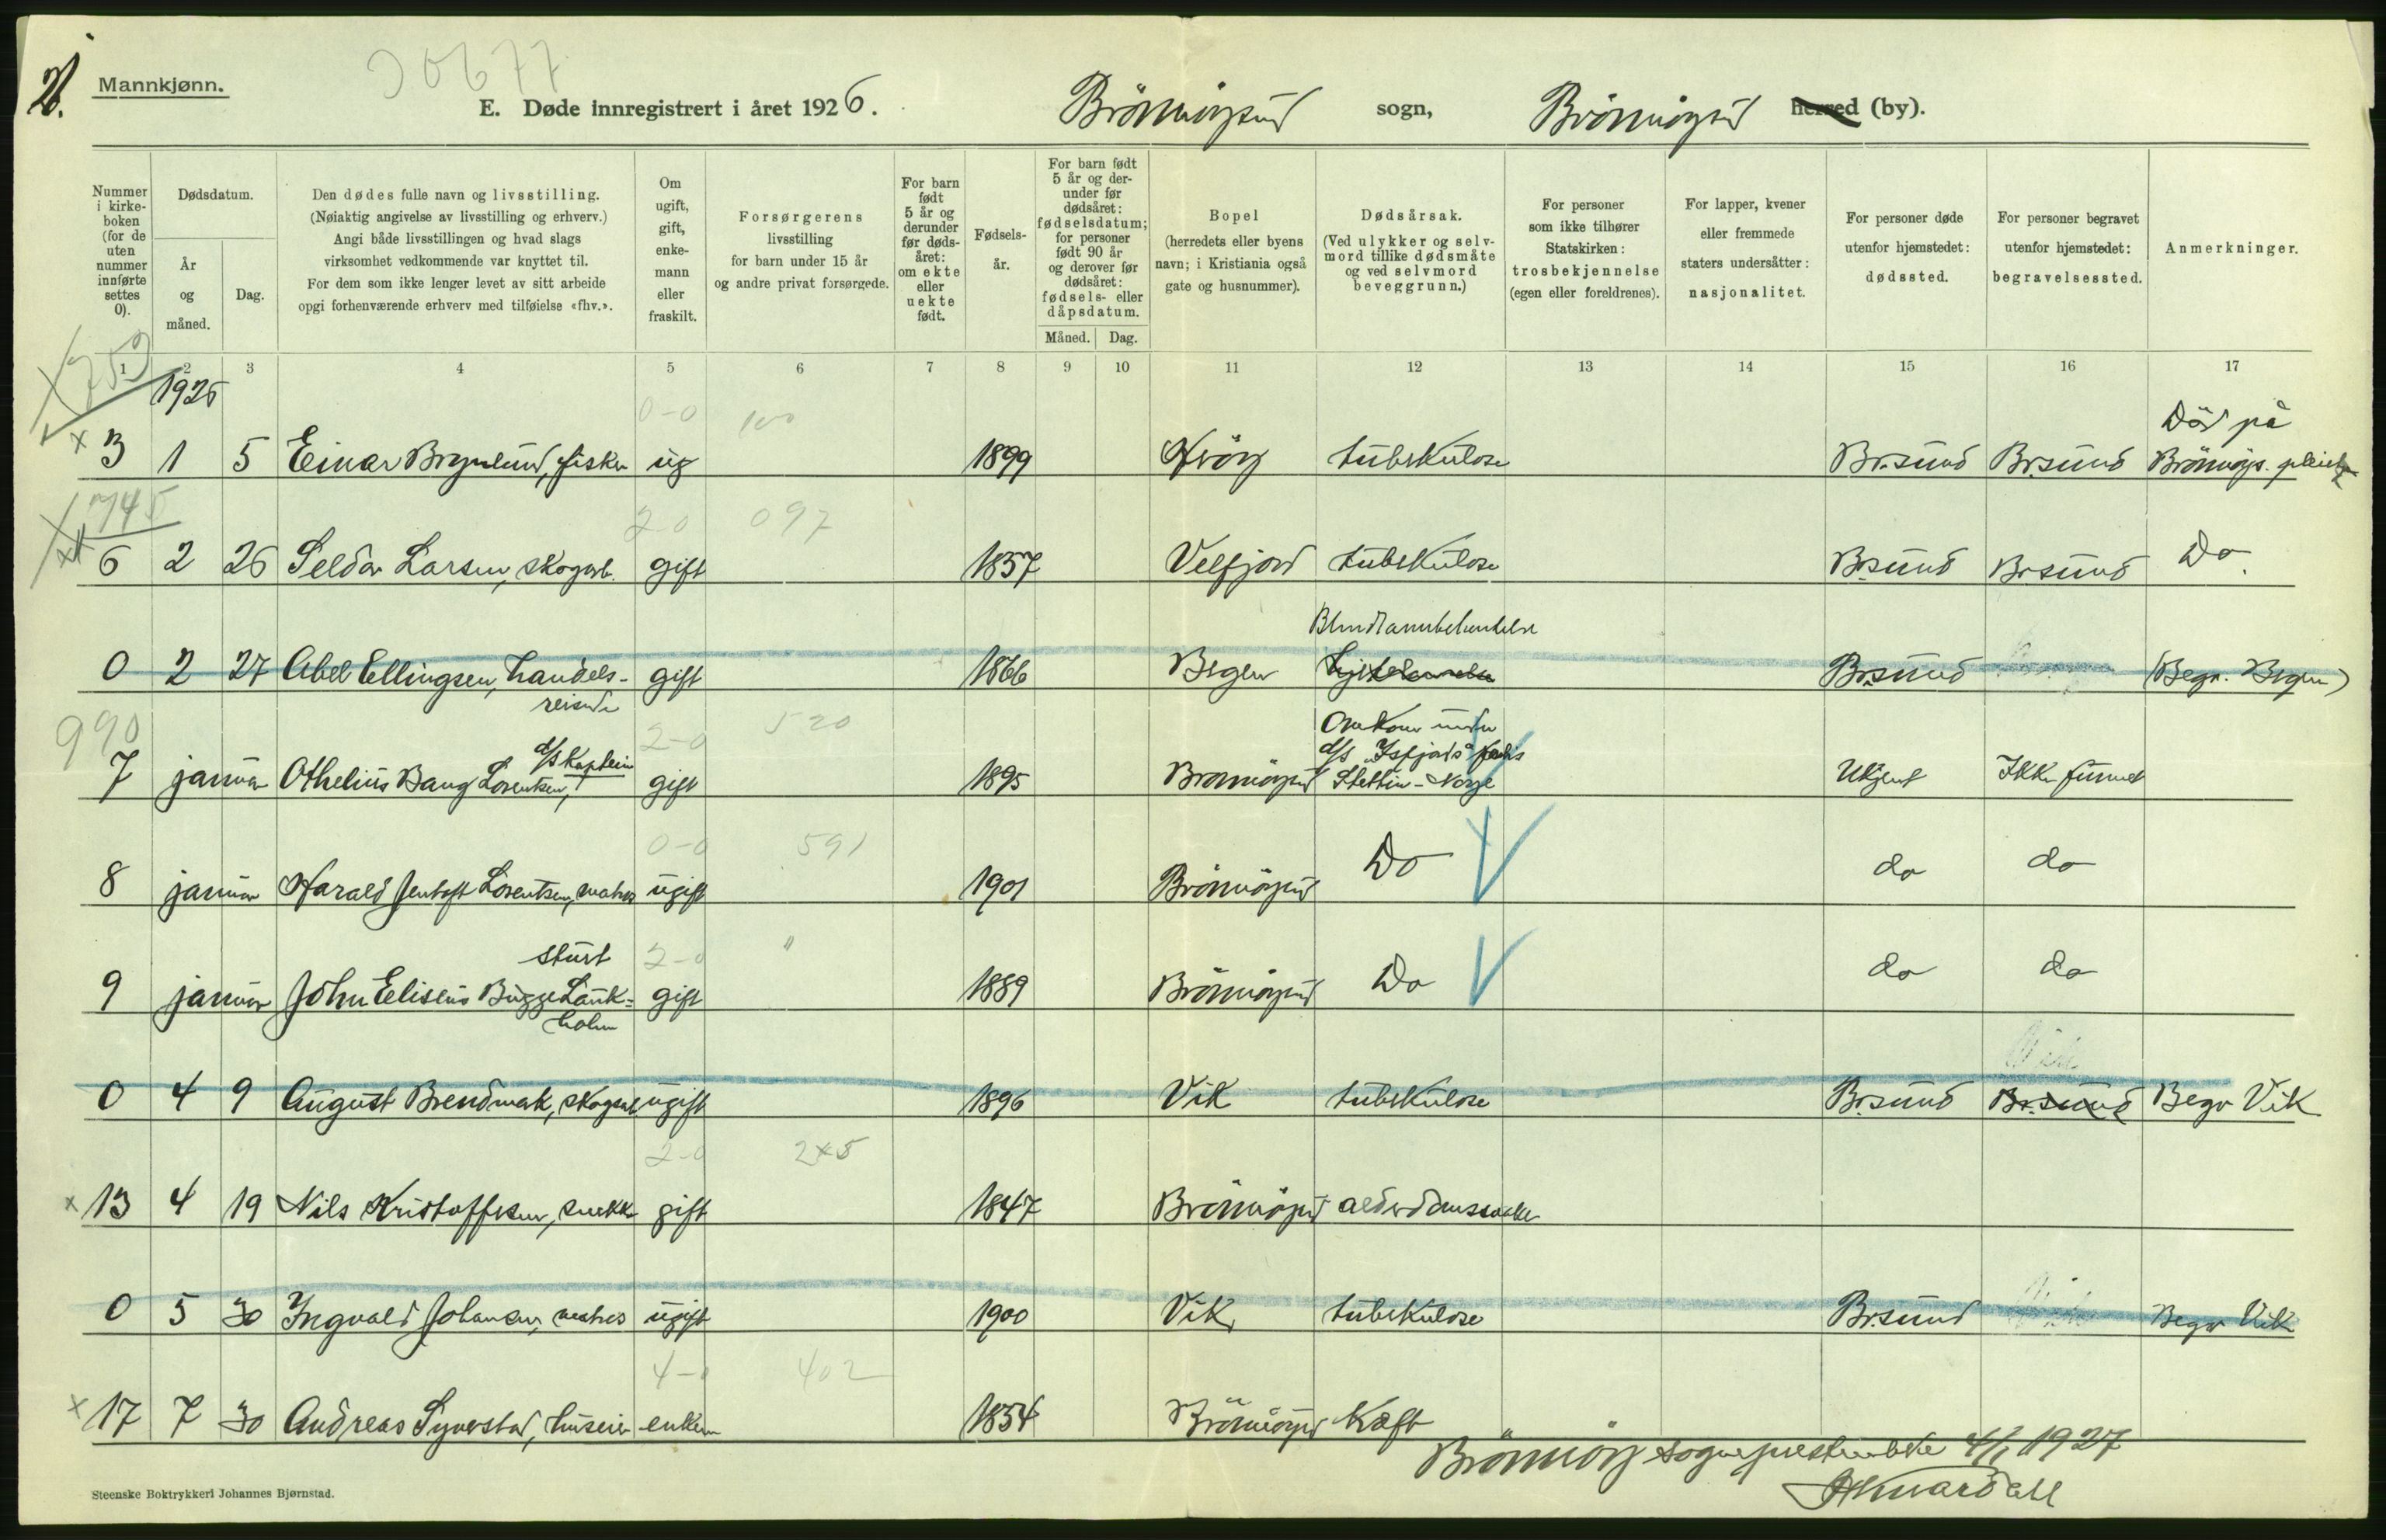 2).
Mannkjønn.
30677
E. Døde innregistrert i året 1926. Brönnöysund sogn, Brönnöysund herred (by).
Nummer i kirke-boken (for de uten nummer innførte settes 0).
Dødsdatum.
År og måned.
Dag.
Den dødes fulle navn og livsstilling.
(Nøiaktig angivelse av livsstilling og erhverv.)
Angi både livsstillingen og hvad slags
virksomhet vedkommende var knyttet til.
For dem som ikke lenger levet av sitt arbeide
opgi forhenværende erhverv med tilføielse «fhv.».
Om ugift, gift, enke-mann eller fraskilt.
Forsørgerens livsstilling for barn under 15 år og andre privat forsørgede.
For barn født 5 år og derunder før døds-året: om ekte eller uekte født.
Fødsels-år.
For barn født 5 år og der-under før dødsåret: fødselsdatum; for personer født 90 år og derover før dødsåret: fødsels- eller dåpsdatum.
Måned. Dag.
Bopel (herredets eller byens navn; i Kristiania også gate og husnummer).
Dødsårsak. (Ved ulykker og selv-mord tillike dødsmåte og ved selvmord beveggrunn.)
For personer som ikke tilhører Statskirken: trosbekjennelse (egen eller foreldrenes).
For lapper, kvener eller fremmede staters undersåtter: nasjonalitet.
For personer døde utenfor hjemstedet: dødssted.
For personer begravet utenfor hjemstedet: begravelsessted.
Anmerkninger.
1 2 3 4 5 6 7 8 9 10 11 12 13 14 15 16 17
1926
0-0
Död på
3 1 5 Einar Brynlund, fisker ug 1899 tuberkulose Br.sund Br.sund Brönnöys. pleiehj
745 2-0 097
6 2 26 Seldar Larsen, skogarb. gift 1857 Velfjord tuberkulose Br.sund Br.sund Do.
0 2 27 Abel Ellingsen, handels- gift 1866 Bergen Br.sund (Begr. Bergen)
reisende
990 2-0 520
Omkom under
d/s Kaptein d/s "Isfjord's" forlis
7 januar Othelius Bang Lorentsen, gift 1895 Brönnöysund Stettin - Norge Ukjent Ikke funnet
0-0 591
8 januar Harald Jentoft Lorentsen, matros ugift 1901 Brönnöysund Do do do
stuert 2-0 "
9 januar John Eliseus Bugge Lank= gift 1889 Brönnöysund Do do do
holm
Vik
0 4 9 August Brendmak, skogarb ugift 1896 Vik tuberkulose Br.sund Br.sund Begr Vik
2-0 245
13 4 19 Nils Kristoffersen, snekker gift 1847 Brönnöysund alderdomssvakhet
0 5 30 Ingvald Johansen, matros ugift 1900 Vik tuberkulose Br.sund Begr Vik
4-0 402
17 7 30 Andreas Syverstad, huseier enkem 1854 Brönnöysund Kræft
Brönnöy sogneprestembete 4/1 1927
Steenske Boktrykkeri Johannes Bjørnstad.